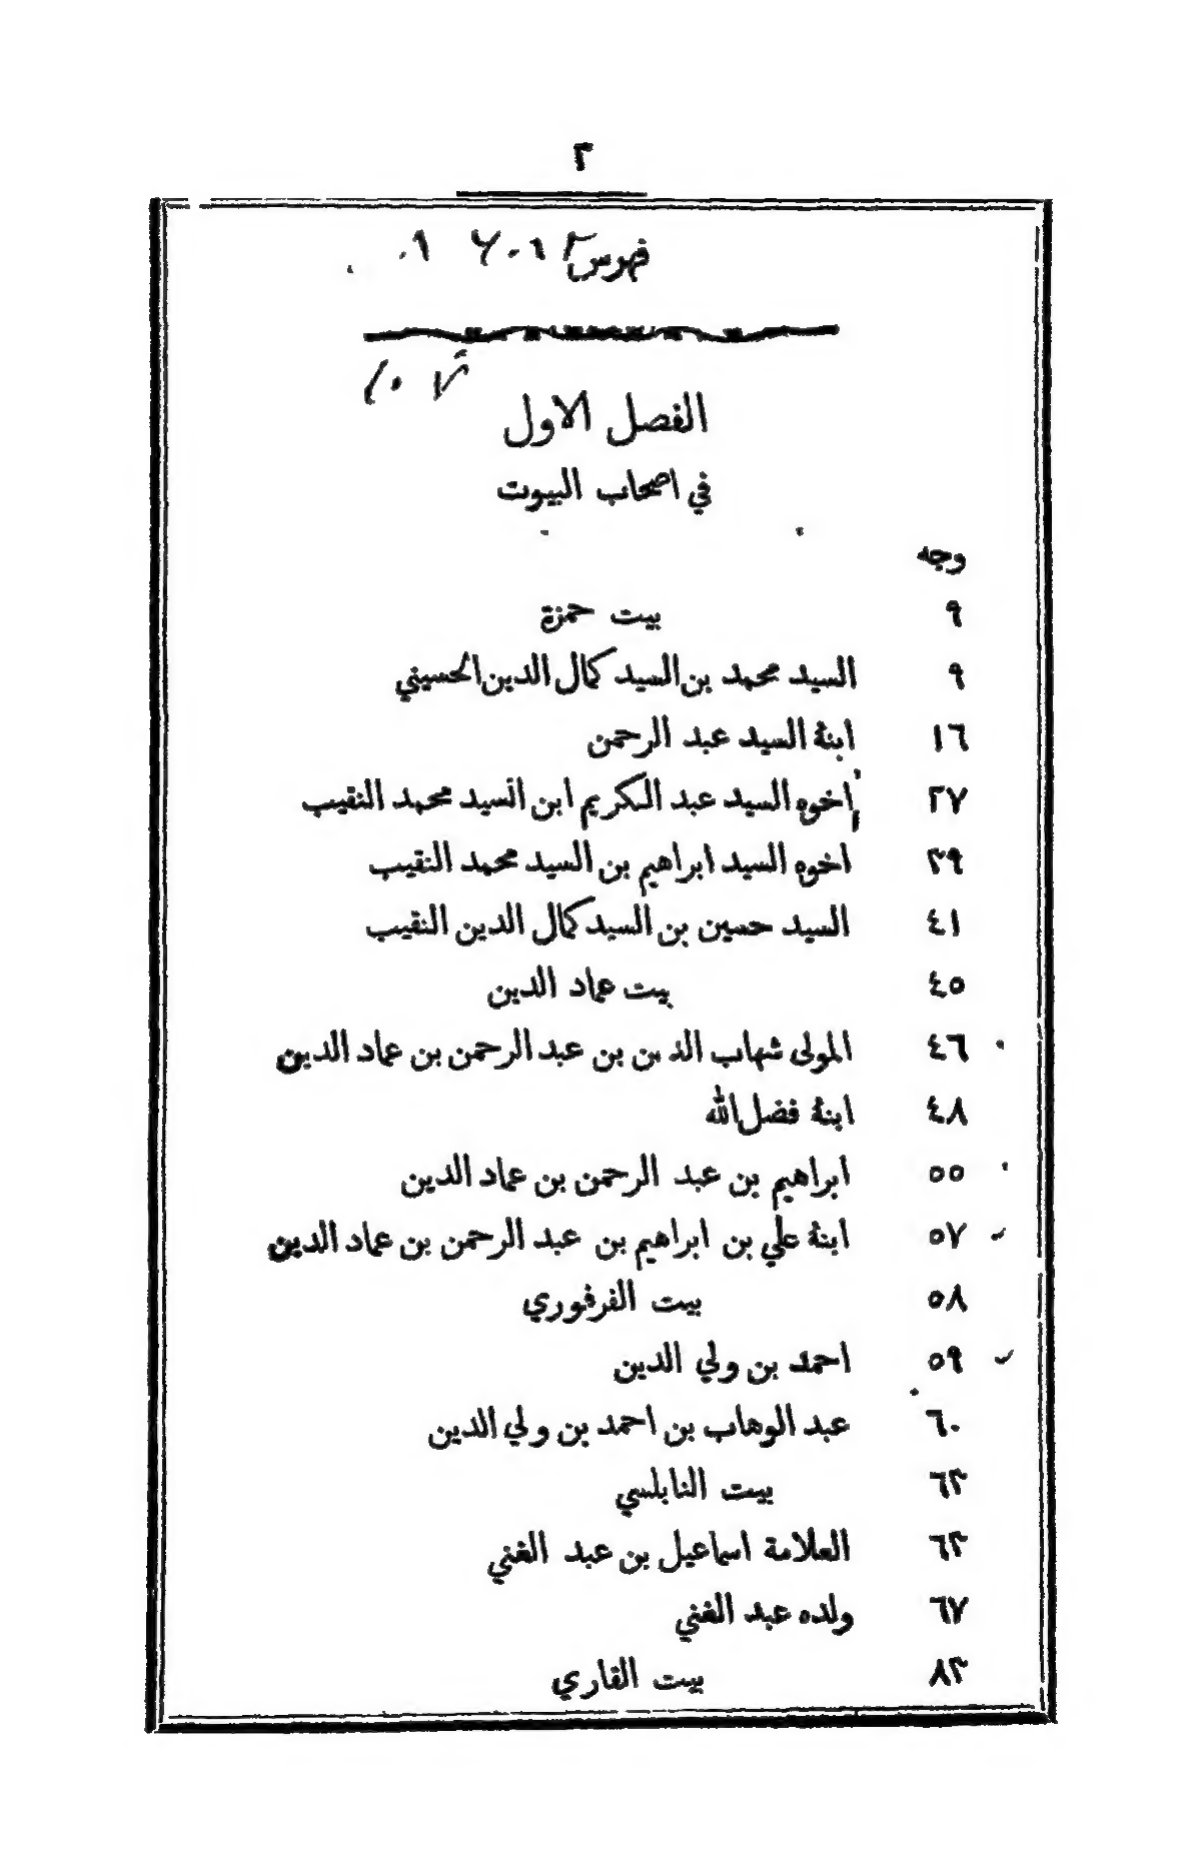 ٣
فهرس
الفصل الاول
في اصحاب البيوت
وجه
٩ بيت حمزة
٩ السيد محمد بن السيد كمال الدين الحسيني
١٦ ابنهُ السيد عبد الرحمن
٢٧ اخوه السيد عبد الكريم ابن السيد محمد النقيب
٣٩ اخوه السيد ابراهيم بن السيد محمد النقيب
٤١ السيد حسين بن السيد كمال الدين النقيب
٤٥ بيت عماد الدين
٤٦ المولى شهاب الدين بن عبد الرحمن بن عماد الدين
٤٨ ابنهُ فضل الله
٥٥ ابراهيم بن عبد الرحمن بن عماد الدين
٥٧ ابنهُ علي بن ابراهيم بن عبد الرحمن بن عماد الدين
٥٨ بيت الفرفوري
٥٩ احمد بن ولي الدين
٦٠ عبد الوهاب بن احمد بن ولي الدين
٦٣ بيت النابلسي
٦٣ العلامة اسماعيل بن عبد الغني
٦٧ ولده عبد الغني
٨٣ بيت القاري